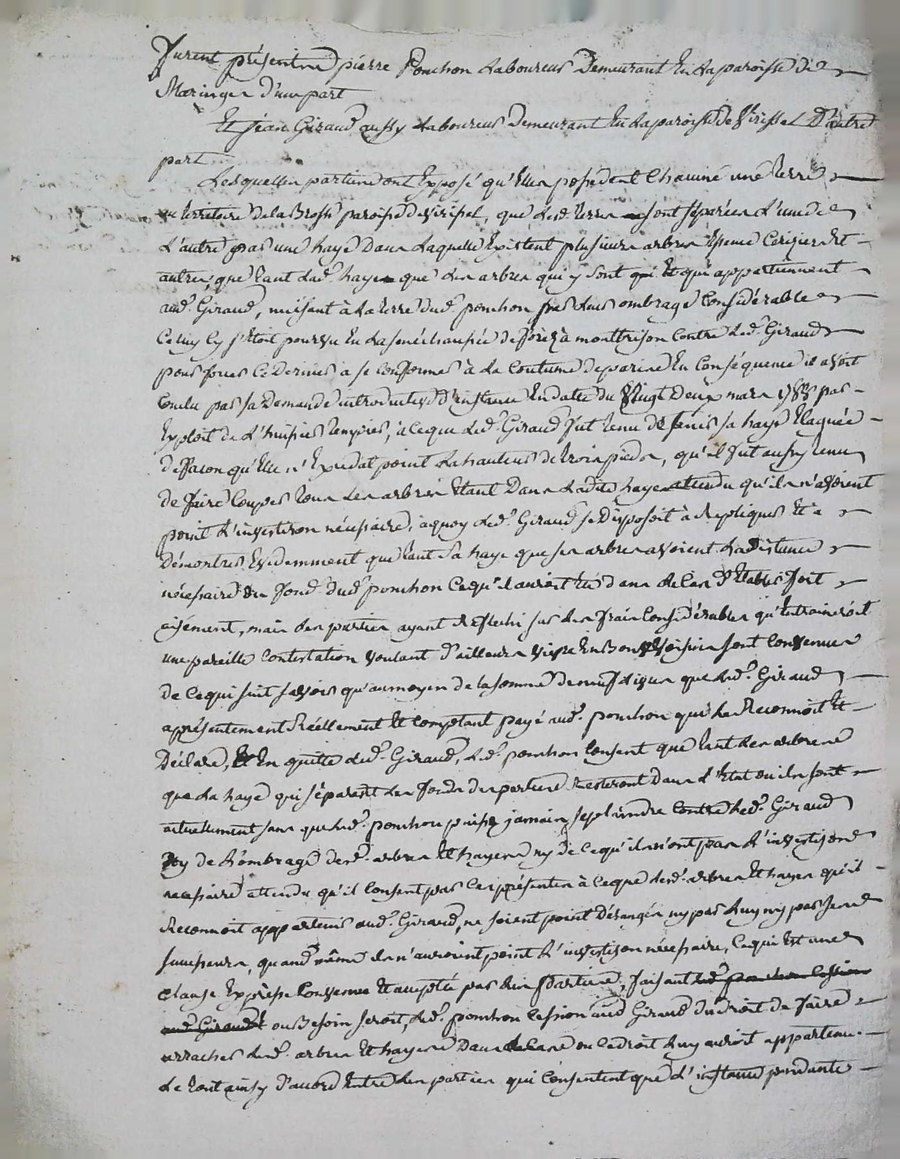 Furent présents pierre Ponchon Laboureur Demeurant En La paroisse de
Maringes d'une part
Et Jean Giraud aussy Laboureur demeurant En La paroisse de Virissel D'autre
part
Lesquelles parties ont Exposé qu'Elles possédent Chacune une terre
au territoire de La Brosse paroisse de Virisel, que Lesd. terres sont séparées L'une de
L'autre par une haye Dans Laquelle Existent plusieurs arbres Essence Cerizier Et
autres, que tant Lad. haye que Les arbres qui y sont qui Et qui appartiennent
aud. Giraud, nuisant à La terre dud. ponchon par Leur ombrage Considérable
Celuy Cy s'étoit pourvu En La sénéchaussée de fôrez à montbrison Contre Led. Giraud
pour forcer Ce Dernier à se Conformer à La Coutume de paris En Conséquence il avoit
Conclu par sa Demande introductive D'instance En datte du Vingt Deux mars par
Exploit de L'huissier à ce que Led. Giraud fut tenu de tenir sa haye Elaguée
de façon qu'Elle n'Excedat point La hauteur de trois pieds, qu'il fut aussy tenu
de faire Couper tous Les arbres Etant Dans La dite haye attendu qu'ils n'avoient
point L'investison nécessaire, à quoy Led. Giraud se Disposoit à Repliquer Et a
Démontrer Evidemment que tant sa haye que ses arbres avoient La distance
nécessaire du fond dud. ponchon Ce qu'il auroit Eu dans Le Cas D'Etablir fort
aisément, mais Les parties ayant Reflechi sur Les frais Considérables qu'Entraineroit
une pareille Contestation voulant d'ailleurs vivre En Bons Voisins sont Convenues
de Ce qui suit savoir qu'au moyen de la somme de neuf que Led. Giraud
apprésentement Réellement Et Comptant payé aud. ponchon qui Le Reconnoit Et
Déclare, Et En quitte Led. Giraud, Led. ponchon Consent que tant Les arbres
que La haye qui séparent Les fonds des parties Resteront Dans L'Etat ou ils sont
actuellement sans que Led. ponchon puisse jamais se plaindre Contre Led. Giraud
Ny de L'ombrage desd. arbres Et hayes ny de Ce qu'ils n'ont pas L'investison
necessaire attendu qu'il Consent par Ces présentes à Ce que Lesd. arbres Et hayes qu'il
Reconnoit appartenir aud. Giraud, ne soient point Dérangés ny par Luy ny par ses
successeurs, quand même ils n'auroient point L'investison nécessaire, Ce qui Est une
Clause Expresse Convenue Et acceptée par Les parties, faisant Led. ponchon Cession
aud. Giraud ou Besoin seroit, Led. ponchon Cession aud Giraud du droit de faire
arracher Lesd. arbres Et hayes Dans Le Cas ou Ce droit Luy auroit appartenu.
Le tout ainsy d'accord Entre Les parties qui Consentent que L'instance pendante